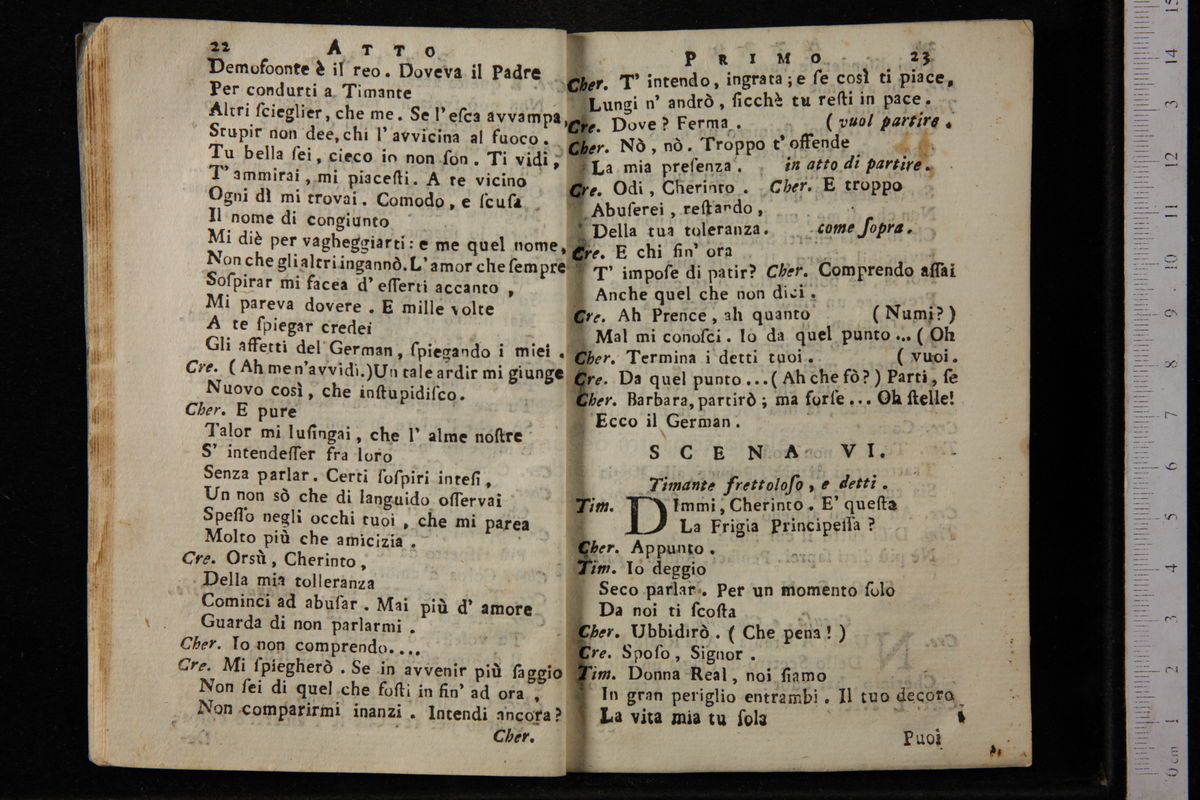 22 ATTO
Demofoonte è il reo. Doveva il Padre
Per condurti a Timante
Altri ſcieglier, che me. Se l' eſca avvampa,
Stupir non dee, chi l' avvicina al fuoco.
Tu bella ſei, cieco io non ſon. Ti vidi,
T' ammirai, mi piaceſti. A te vicino
Ogni dì mi trovai. Comodo, e ſcuſa
Il nome di congiunto
Mi diè per vagheggiarti: e me quel nome,
Non che gli altri ingannò. L' amor che ſempre
Soſpirar mi facea d' eſſerti accanto,
Mi pareva dovere. E mille volte
A te ſpiegar credei
Gli affetti del German, ſpiegando i miei.
Cre. (Ah me n' avvidi.) Un tale ardir mi giunge
Nuovo così, che inſtupidiſco.
Cher. E pure
Talor mi luſingai, che l' alme noſtre
S' intendeſſer fra loro
Senza parlar. Certi ſoſpiri inteſi,
Un non sò che di languido oſſervai
Speſſo negli occhi tuoi, che mi parea
Molto più che amicizia.
Cre. Orsù, Cherinto,
Della mia tolleranza
Cominci ad abuſar. Mai più d' amore
Guarda di non parlarmi.
Cher. Io non comprendo....
Cre. Mi ſpiegherò. Se in avvenir più ſaggio
Non ſei di quel che foſti in ſin' ad ora,
Non comparirmi inanzi. Intendi ancora?
Cher.
PRIMO 23
Cher. T' intendo, ingrata; e ſe così ti piace,
Lungi n' andrò, ſicchè tu reſti in pace.
Cre. Dove? Ferma. (vuol partire.
Cher. Nò, nò. Troppo t' offende
La mia preſenza. in atto di partire.
Cre. Odi, Cherinto. Cher. E troppo
Abuſerei, reſtando,
Della tua toleranza. come ſopra.
Cre. E chi fin' ora
T' impoſe di patir? Cher. Comprendo aſſai
Anche quel che non dici.
Cre. Ah Prence, ah quanto (Numi?)
Mal mi conoſci. Io da quel punto... (Oh
Cher. Termina i detti tuoi. (vuoi.
Cre. Da quel punto... (Ah che fò?) Parti, ſe
Cher. Barbara, partirò; ma forſe... Oh ſtelle!
Ecco il German.
SCENA VI.
Timante frettoloſo, e detti.
Tim. DImmi, Cherinto. E' queſta
La Frigia Principeſſa?
Cher. Appunto.
Tim. Io deggio
Seco parlar. Per un momento ſolo
Da noi ti ſcoſta
Cher. Ubbidirò. (Che pena!)
Cre. Spoſo, Signor.
Tim. Donna Real, noi ſiamo
In gran periglio entrambi. Il tuo decoro
La vita mia tu ſola
Puoi